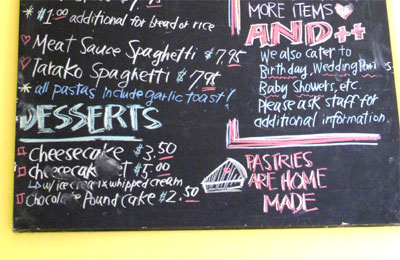 * $1.00 additional for bread or rice
♡ Meat Sauce Spaghetti $7.95
♡ Tarako Spaghetti $7.95
* all pastas include garlic toast!
DESSERTS
cheesecake $3.50
$5.00
w/ ice cream & whipped cream
Chocolate Pound Cake $2.50
MORE ITEMS ♡
AND++
We also cater to
Birthday, Wedding Parties
Baby Showers, etc.
Please ask staff for
additional information.
PASTRIES
ARE HOME
MADE